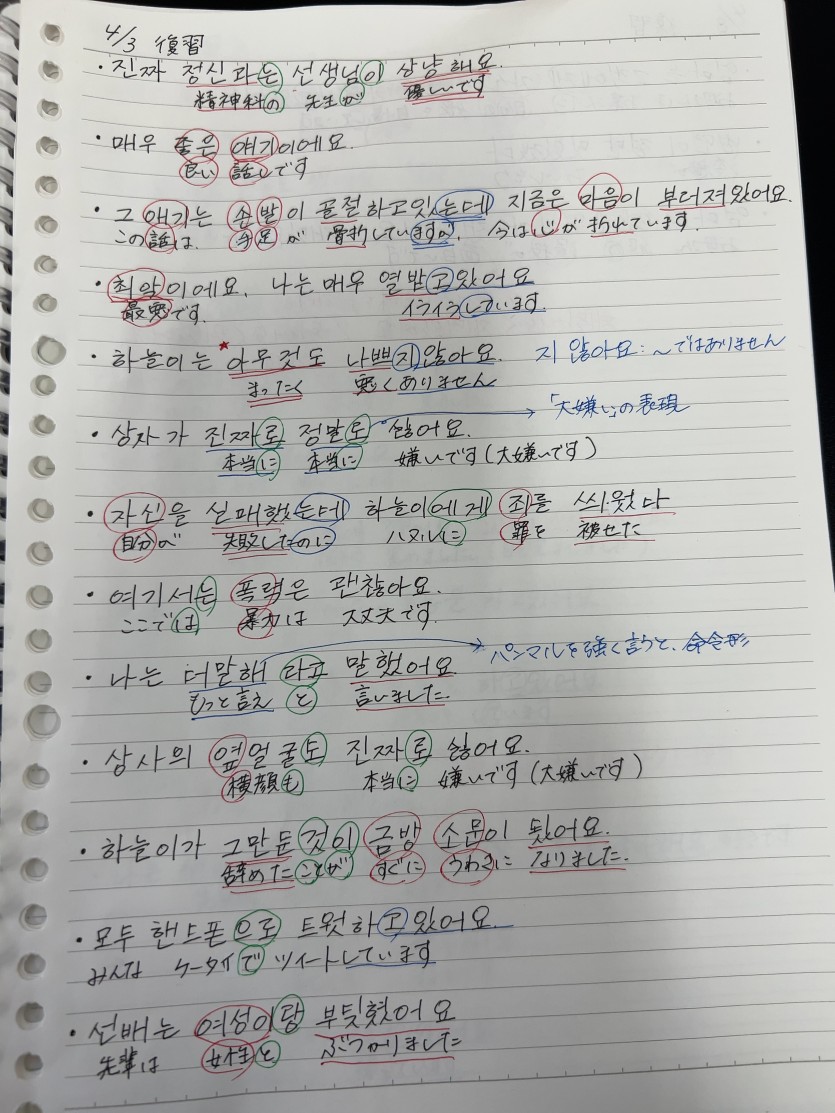 4/3 復習
・진짜 정신과는 선생님이 상냥해요.
精神科の 先生が 優しいです
・매우 좋은 얘기이에요.
良い 話しです
・그 얘기는 손발이 골절하고있는데 지금은 마음이 부러져있어요.
この話は、手足が 骨折していますが、今は心が折れています.
・최악이에요. 나는 매우 열받고있어요
最悪です. イライラしています.
・하늘이는 *아무것도 나쁘지않아요. 지 않아요:~ではありません
まったく 悪くありません
・상자가 진짜로 정말로 싫어요. 「大嫌い」の表現
本当に 本当に 嫌いです(大嫌いです)
・자신을 실패했는데 하늘이에게 죄를 씌웠다
自分が 失敗したのに ハヌルに 罪を 被せた
・여기서는 폭력은 괜찮아요.
ここでは 暴力は 大丈夫です.
・나는 더말해 라고 말했어요 パンマルを強く言うと、命令形
もっと言え と 言いました.
・상사의 옆얼굴도 진짜로 싫어요.
横顔も 本当に 嫌いです(大嫌いです)
・하늘이가 그만둔 것이 금방 소문이 됬어요.
辞めた ことが すぐに うわさに なりました.
・모두 핸드폰으로 트윗하고있어요.
みんな ケータイで ツイートしています
・선배는 여성이랑 부딪혔어요
先輩は 女性と ぶつかりました